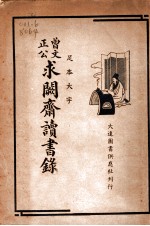 曾文
正公
求闕齋讀書錄
足本大字
大達圖書供應社刊行